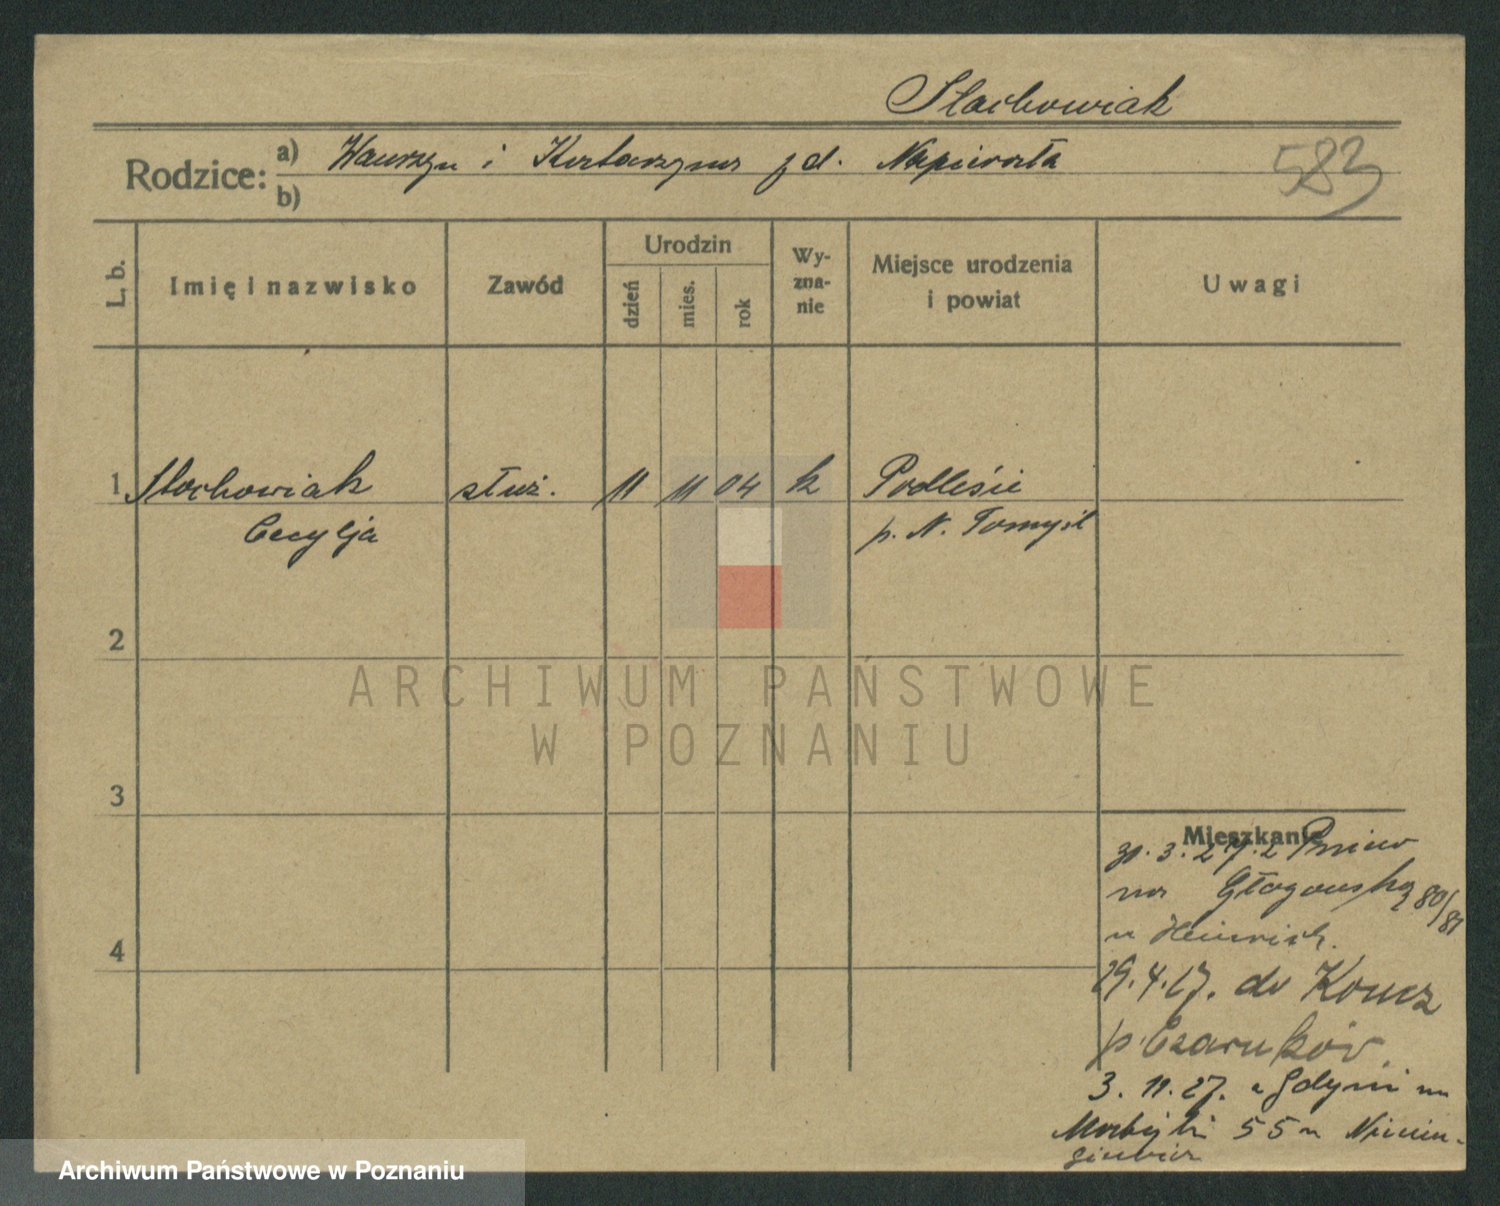 Stachowiak
Rodzice: a) Wawrzyn i Katarzyna z d. Napierała
b)
583
L. b.
Imię i nazwisko
Zawód
Urodzin
dzień
mies.
rok
Wy-
zna-
nie
Miejsce urodzenia
i powiat
Uwagi
1 Stachowiak służ. 11 11 04 k Podlesie
Cecylja p. N. Tomyśl
2
3
4
Mieszkanie
31.3.27. z Pniew
na Głogowską 80/81
u Heinrich.
29.4.27. do
p. Czarnków.
3.11.27. z Gdyni na
55 u
ARCHIWUM PAŃSTWOWE
W POZNANIU
Archiwum Państwowe w Poznaniu